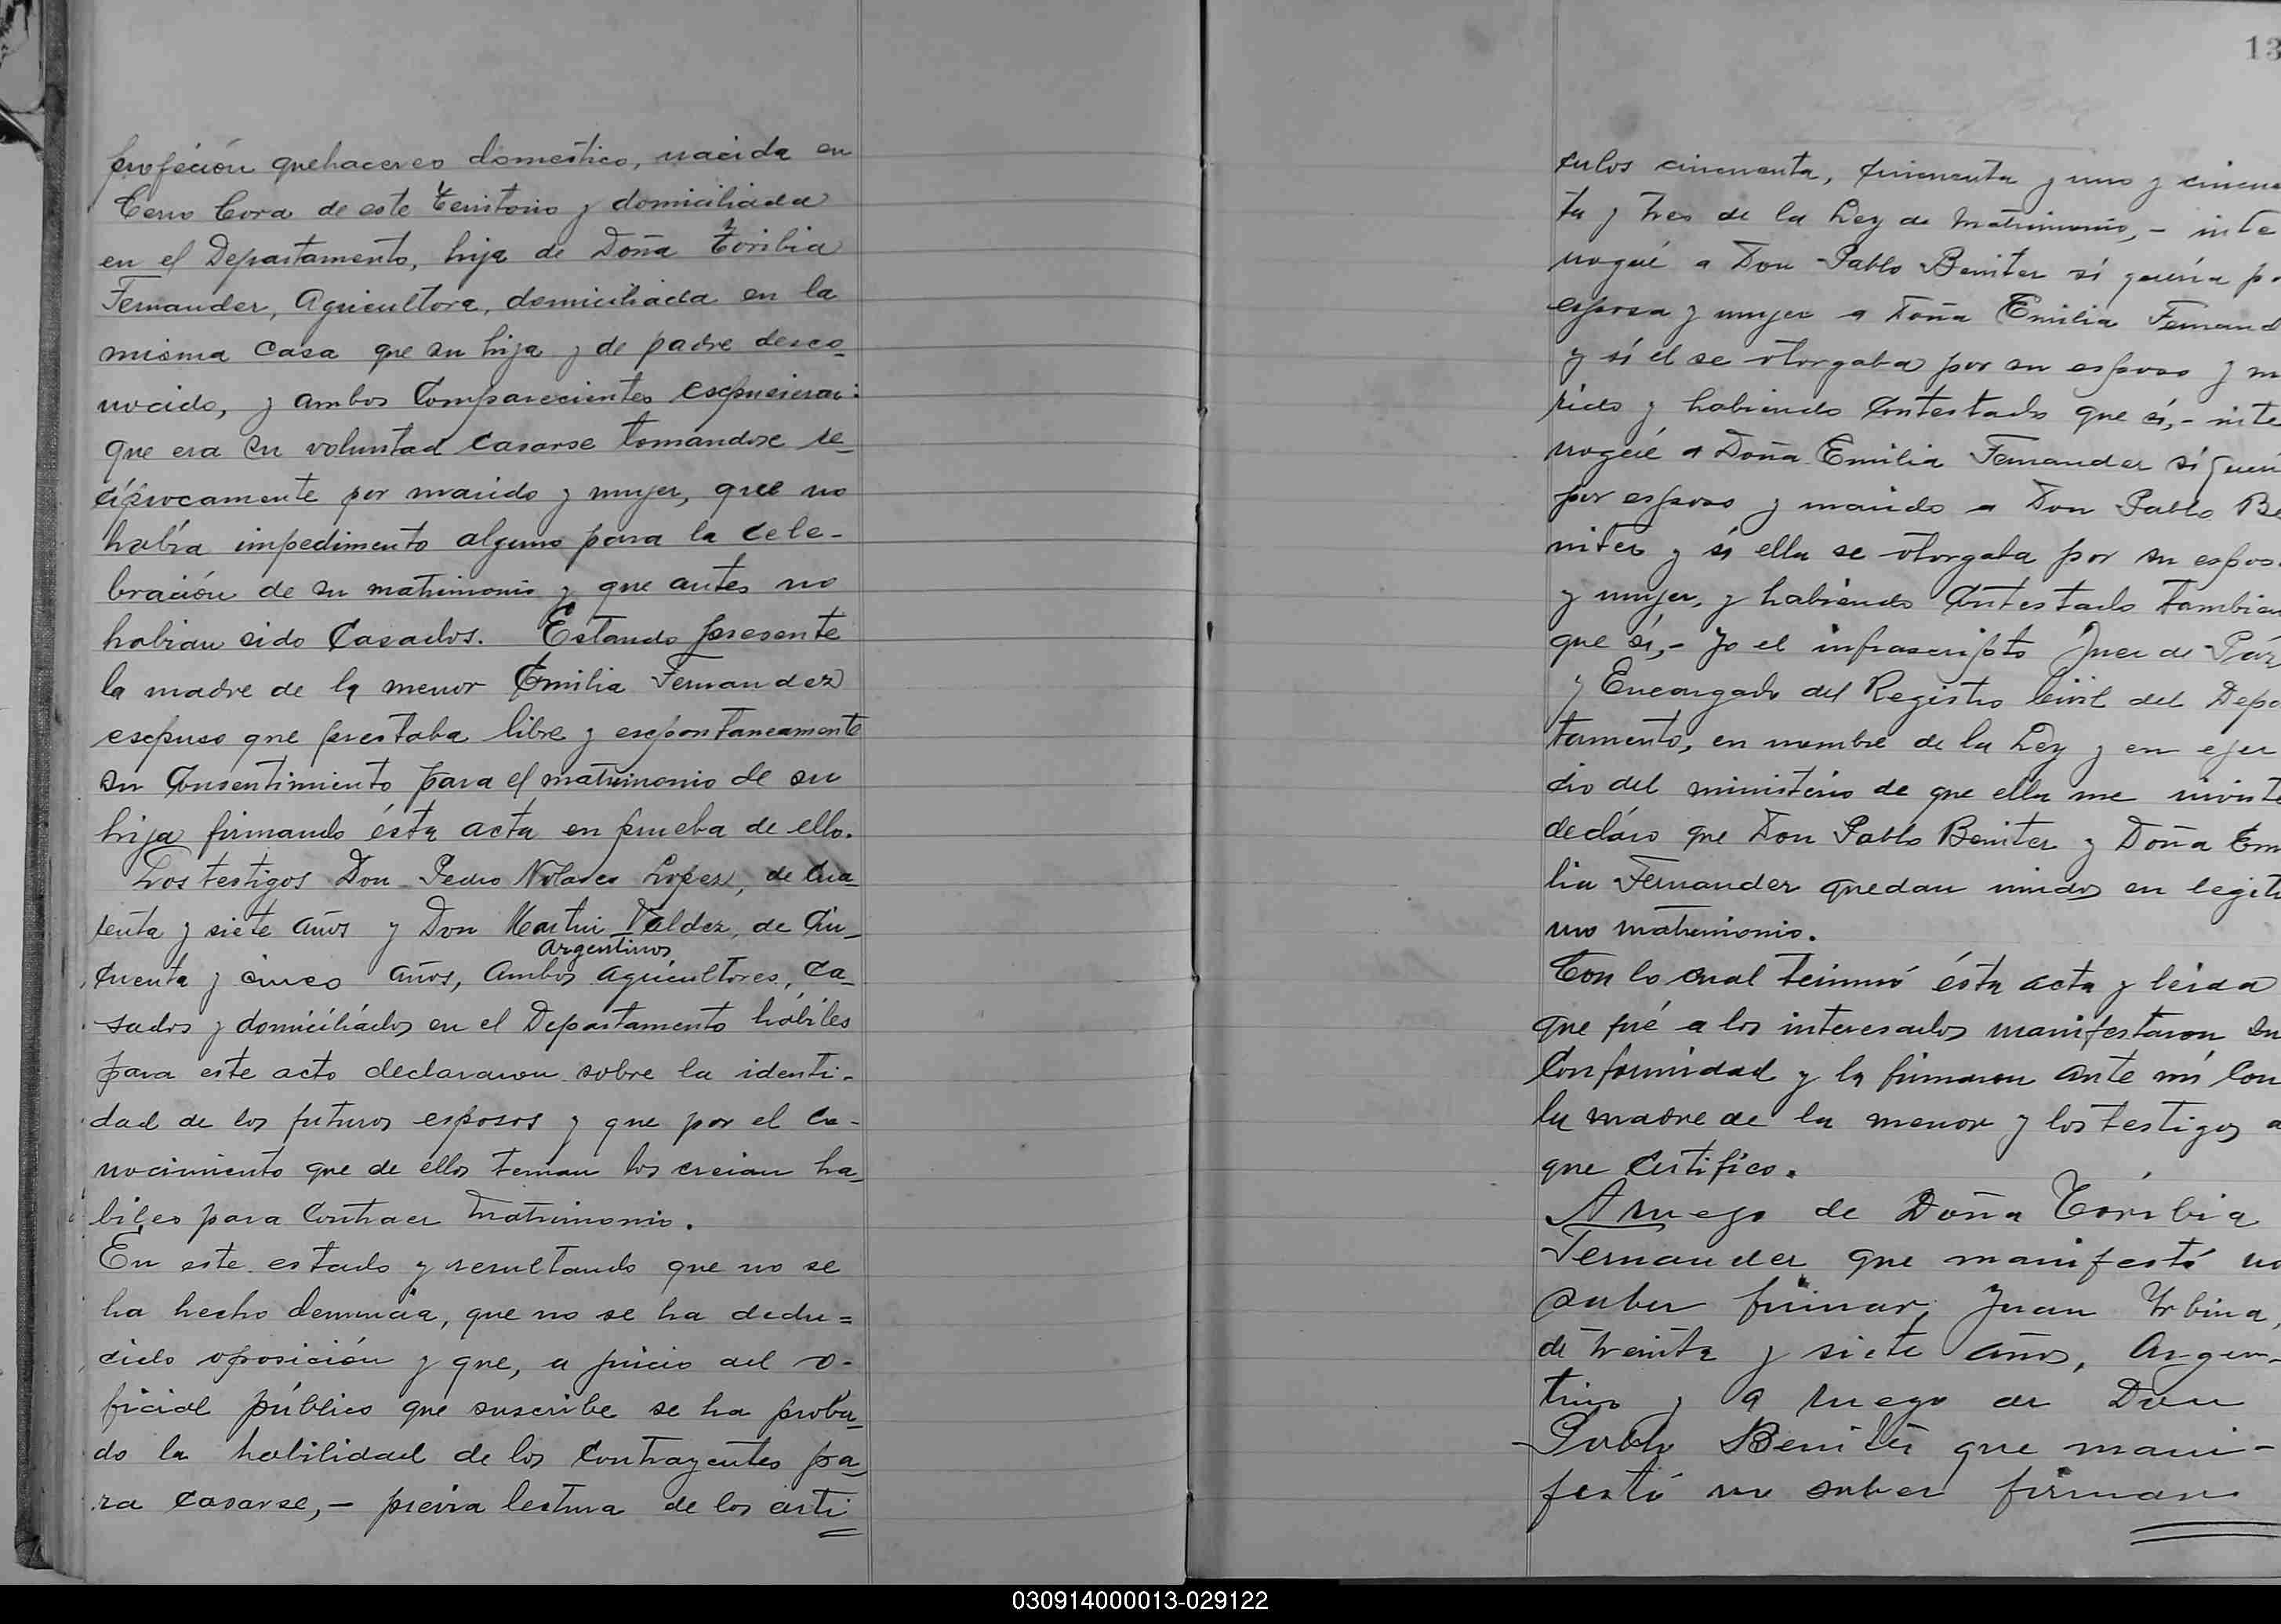 profeción quehaceres domestico, nacida en
Cerro Cora de este Territorio y domiciliada
en el Departamento, hija de Doña Toribia
Fernandez, Agricultora, domiciliada en la
misma casa que su hija y de padre desco-
nocido, y ambos Comparecientes escpusieron:
que era su voluntad casarse tomandose re-
ciprocamente por marido y mujer, que no
había impedimento alguno para la cele-
bración de su matrimonio y que antes no
habian sido Casados. Estando presente
la madre de la menor Emilia Fernandez
escpuso que prestaba libre y escpontaneamente
su Consentimiento para el matrimonio de su
hija firmando ésta acta en prueba de ello.
Los testigos Don Pedro Nolasco Lopez, de cua-
renta y siete años y Don Martin Valdez, de Cin-
Argentinos
cuenta y cinco años, Ambos agricultores, ca-
sados y domiciliados en el Departamento hábiles
para este acto declararon sobre la identi-
dad de los futuros esposos y que por el co-
nocimiento que de ellos tenian los creian ha-
biles para Contraer Matrimonio.
En este estado y resultando que no se
ha hecho denuncia, que no se ha dedu=
cido oposición y que, a juicio del o-
ficial público que suscribe se ha proba-
do la habilidad de los Contrayentes pa-
ra casarse,- previa lectura de los arti
13
culos cincuenta, cincuenta y uno y cincu
ta y tres de la Ley de Matrimonio,- inte
rrogué a Don Pablo Benitez sí quería po
esposa y mujer a Doña Emilia Fernand
y sí él se otorgaba por su esposo y m
rido y habiendo Contestado que sí,- inte
rrogué a Doña Emilia Fernandez sí querí
por esposo y marido a Don Pablo Be
nitez y sí ella se otorgaba por su espos
y mujer, y habiendo Contestado tambien
que sí,- Yo el infrascripto Juez de Páz
y Encargado del Registro Civil del Depa
tamento, en nombre de la Ley y en ejer
cio del ministério de que ella me inviste
decláro que Don Pablo Benitez y Doña Em
lia Fernandez quedan unidos en legiti
mo matrimonio.
Con lo cual terminó ésta acta y leida
que fué a los interesados manifestaron su
Conformidad y la firmaron ante mí Con
la madre de la menor y los testigos a
que Certifico.
A ruego de Doña Toribia
Fernandez que manifestó no
saber firmar, Juan Urbina,
de treinta y siete años, Argen-
tino y a ruego de Don
Pablo Benitez que mani-
festó no saber firmar
030914000013-029122